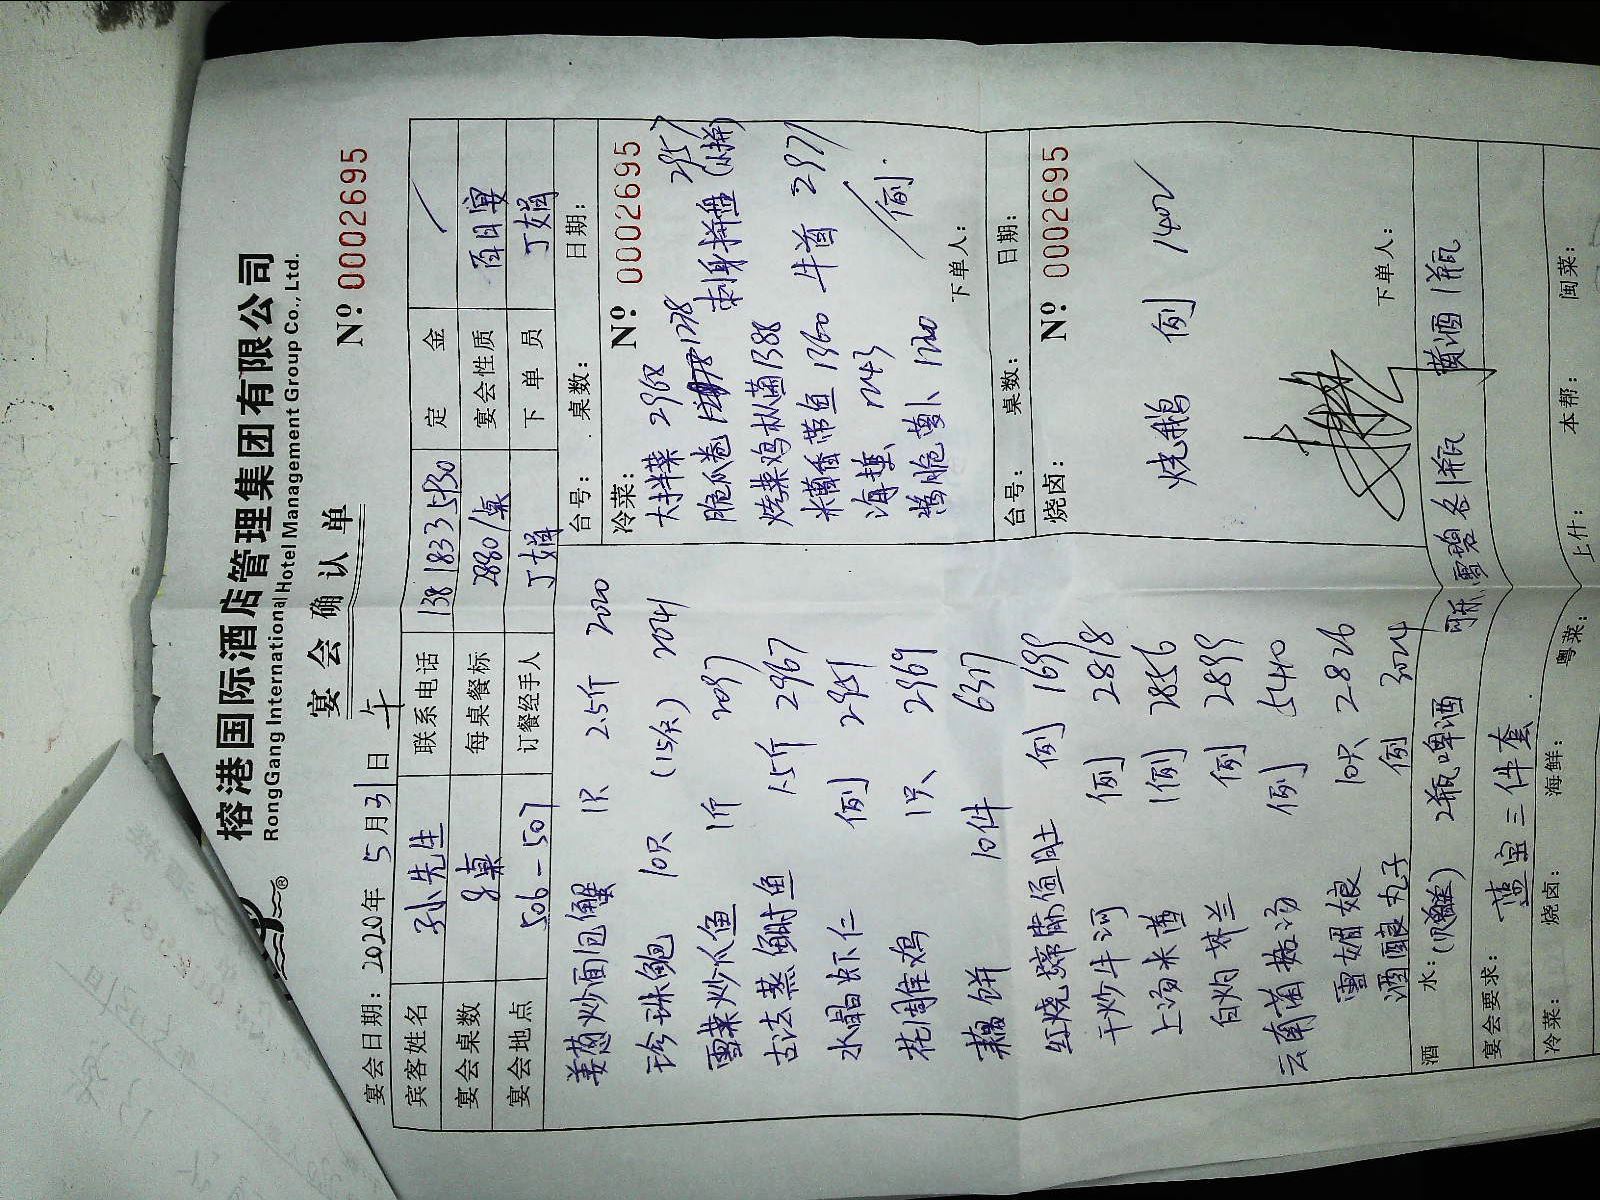 榕港国际酒店管理集团有限公司
RongGang International Hotel Management Group Co., Ltd.
®
宴会确认单
宴会日期: 2020年5月31日 午
Nº 0002695
宾客姓名 孙先生 联系电话 138 1833 5930 定金 /
宴会桌数 2桌 每桌餐标 2880/桌 宴会性质 百日宴
宴会地点 506-507 订餐经手人 丁娟 下单员 丁娟
姜葱炒面包蟹 1只 2.5斤 2020
珍珠鲍 10只 (15头) 2041
雪菜炒爪鱼 1斤 2097
古法蒸鲥鱼 1.5斤 2967
水晶虾仁 例 2951
花雕鸡 1只 2969
藕饼 10件 6317
红烧蹄髈 例 1699
干炒牛河 例 2818
上汤米苋 1例 2856
白灼芥兰 例 2899
云南菌菇汤 例 5440
雪媚娘 10只 2826
酒酿丸子 例 3024
台号: 桌数: 日期:
冷菜: Nº 0002695
大拌菜 2968
脆瓜卷 1278
刺身拼盘 (小拼) 2957
烤菜鸡枞菌 1388
糟香带鱼 1360
牛首 2971
海蜇 1243
酱脆萝卜 1220
/例.
下单人:
台号: 桌数: 日期:
烧卤: Nº 0002695
烧鹅 例 1402
下单人:
酒水: 2瓶啤酒 可乐 雪碧各1瓶 黄酒1瓶
宴会要求: 蓝宝三件套
冷菜: 烧卤: 海鲜: 粤菜: 上什: 本帮: 闽菜: